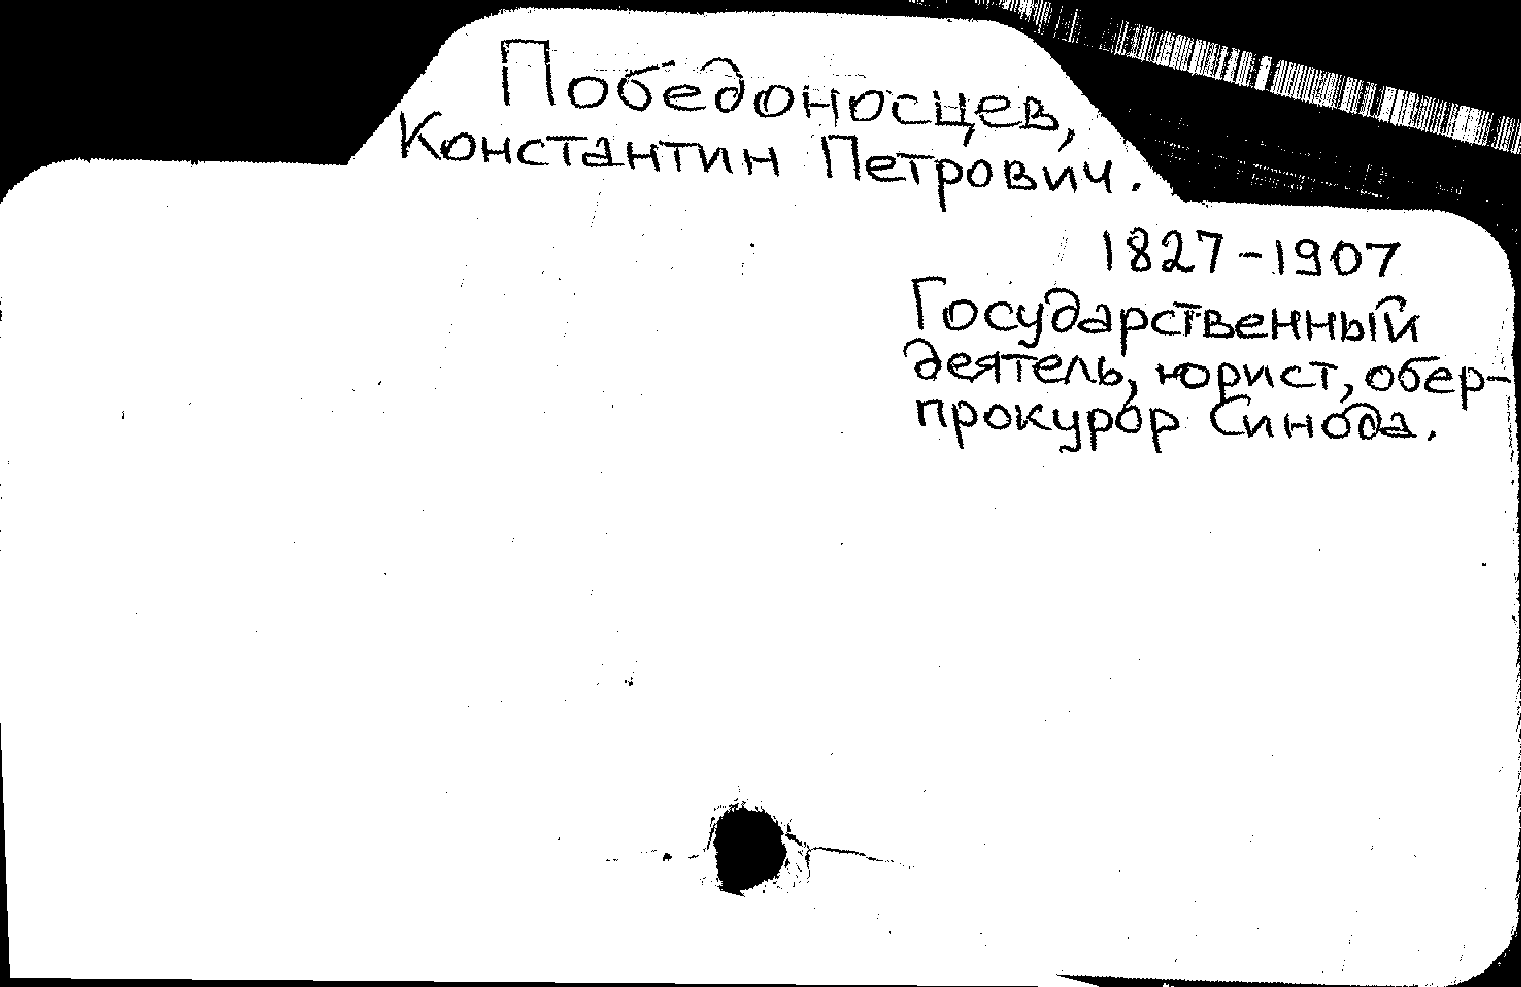 Победоносцев,
Константин Петрович.
1827-1907
Государственный
деятель, юрист, обер-
прокурор Синода.